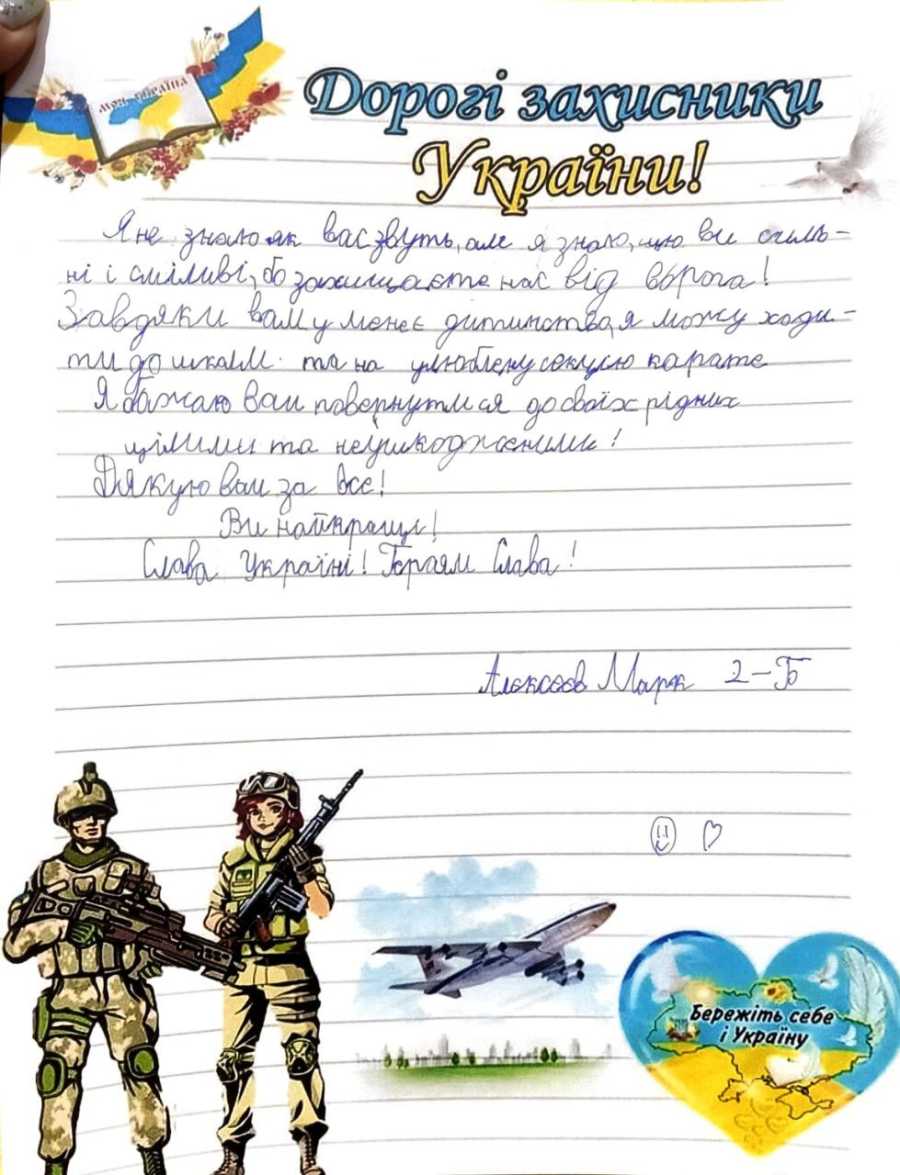 моя Україна
Дорогі захисники
України!
Я не знаю як вас звуть, але я знаю, що ви силь-
ні і сміливі, бо захищаєте нас від ворога!
Завдяки вам у мене є дитинство, я можу ходи-
ти до школи та на улюблену секцію карате
Я бажаю вам повернутися до своїх рідних
цілими та неушкодженими!
Дякую вам за все!
Ви найкращі!
Слава Україні! Героям Слава!
Алексєєв Марк 2-Б
Бережіть себе
і Україну